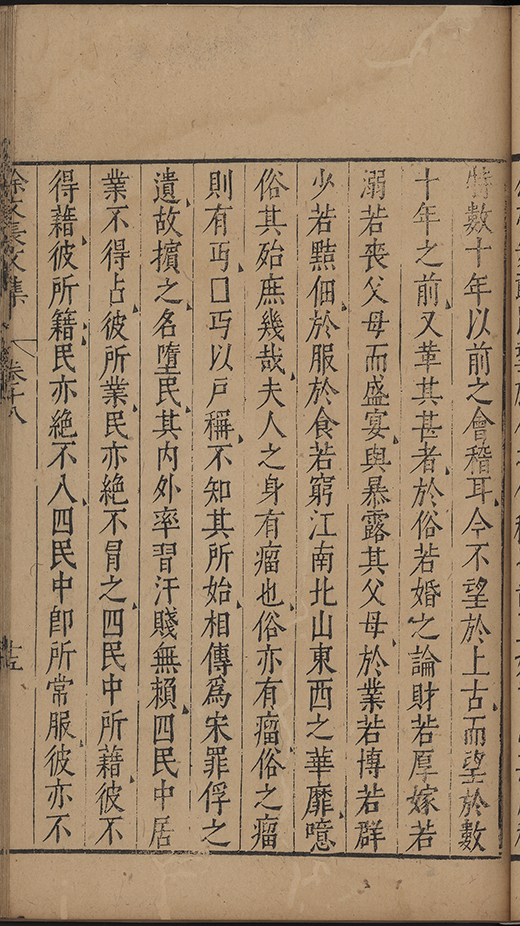 特數十年以前之會稽耳今不望於上古而望於數
十年之前又革其甚者於俗若婚之論財若厚嫁若
溺若喪父母而盛宴與暴露其父母於業若博若群
少若黠佃於服於食若窮江南北山東西之華靡噫
俗其殆庶幾哉夫人之身有瘤也俗亦有瘤俗之瘤
則有丐口丐以戶稱不知其所始相傳爲宋罪俘之
遺故擯之名墮民其内外率習汗賤無賴四民中居
業不得占彼所業民亦絶不冐之四民中所藉彼不
得藉彼所籍民亦絶不入四民中卽所常服彼亦不
徐文長文集 卷十八 十五